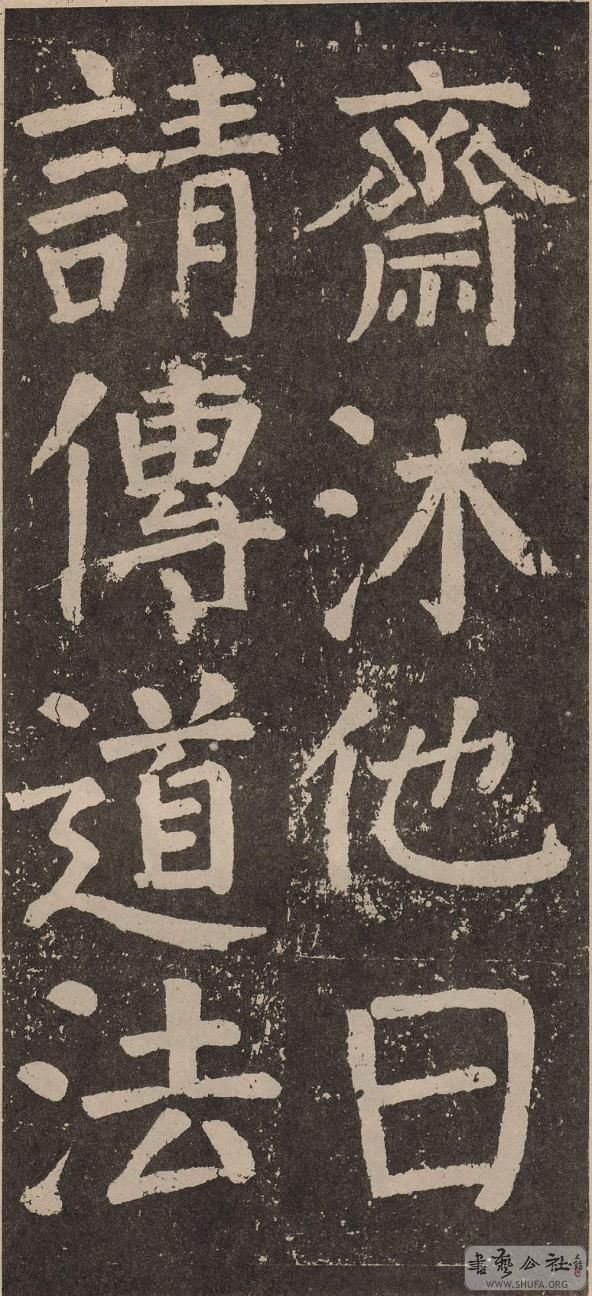 齋沐他日
請傳道法
書藝公社
WWW.SHUFA.ORG